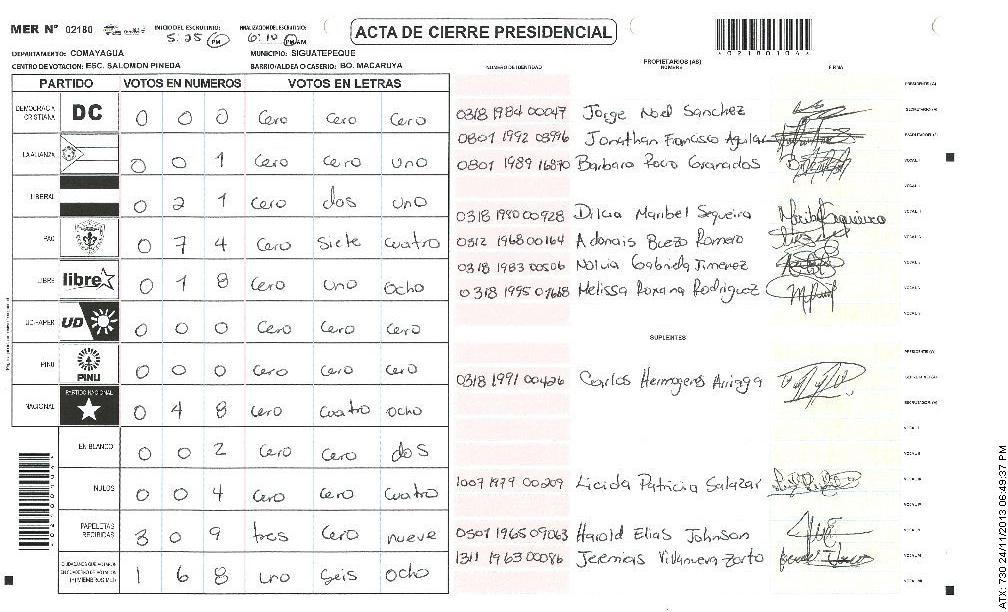 MER Nº 02180
INICIO DEL ESCRUTINIO: 5:25 PM
FINALIZACION DEL ESCRUTINIO: 6:10 PM AM
ACTA DE CIERRE PRESIDENCIAL
02180104
DEPARTAMENTO: COMAYAGUA MUNICIPIO: SIGUATEPEQUE
CENTRO DE VOTACION: ESC. SALOMON PINEDA BARRIO/ALDEA O CASERIO: BO. MACARUYA
PARTIDO VOTOS EN NUMEROS VOTOS EN LETRAS
DEMOCRACIA CRISTIANA DC 0 0 0 Cero Cero Cero
LA ALIANZA 0 0 1 Cero Cero uno
LIBERAL 0 2 1 Cero dos uno
PAC 0 7 4 Cero Siete Cuatro
LIBRE libre 0 1 8 Cero uno ocho
UD-FAPER UD 0 0 0 Cero Cero Cero
PINU PINU 0 0 0 Cero Cero Cero
NACIONAL PARTIDO NACIONAL 0 4 8 Cero Cuatro ocho
EN BLANCO 0 0 2 Cero Cero dos
NULOS 0 0 4 Cero Cero Cuatro
PAPELETAS RECIBIDAS 3 0 9 tres Cero nueve
1 6 8 uno Seis ocho
NUMERO DE IDENTIDAD
PROPIETARIOS (AS)
NOMBRE
FIRMA
PRESIDENTE (A)
0318 1984 00047 Jorge Noel Sanchez SECRETARIO (A)
0801 1992 08996 Jonathan Francisco Aguilar ESCRUTADOR (A)
0801 1989 16870 Barbara Rocio Granados VOCAL I
0318 1980 00928 Dilcia Maribel Sequeira
0312 1968 00164 Adonais Buezo Romero
0318 1983 00506 Nolvia Gabriela Jimenez
0318 1995 01668 Melissa Roxana Rodriguez
SUPLENTES
PRESIDENTE (A)
0318 1991 00426 Carlos Hermogenes Arriaga SECRETARIO (A)
ESCRUTADOR (A)
1007 1979 00209 Licida Patricia Salazar
0501 1965 09063 Harold Elias Johnson
1311 1963 00086 Jeremias Villanueva Zorto
ATX: 730 24/11/2013 06:49:37 PM